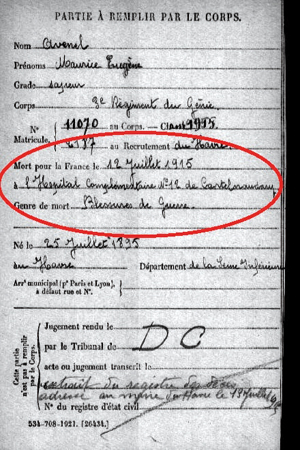 PARTIE À REMPLIR PAR LE CORPS.
Nom Avenel
Prénoms Maurice Eugène
Grade sapeur
Corps 3e Régiment du Génie
N° 11070 au Corps. — Classe 1915
Matricule. au Recrutement du Havre
Mort pour la France le 12 Juillet 1915
à l'Hospital Complémentaire N° 12 de Castelnaudary
Genre de mort Blessures de Guerre
Né le 25 Juillet 1895
au Havre Département de la Seine Inférieure
Arrt municipal (pr Paris et Lyon),
à défaut rue et N°.
Cette partie n'est pas à remplir par le Corps.
Jugement rendu le
par le Tribunal de D C
acte ou jugement transcrit le
extrait du registre des décès
adressé au maire du Havre le 19 Juillet
N° du registre d'état civil
534-708-1921. [26434.]